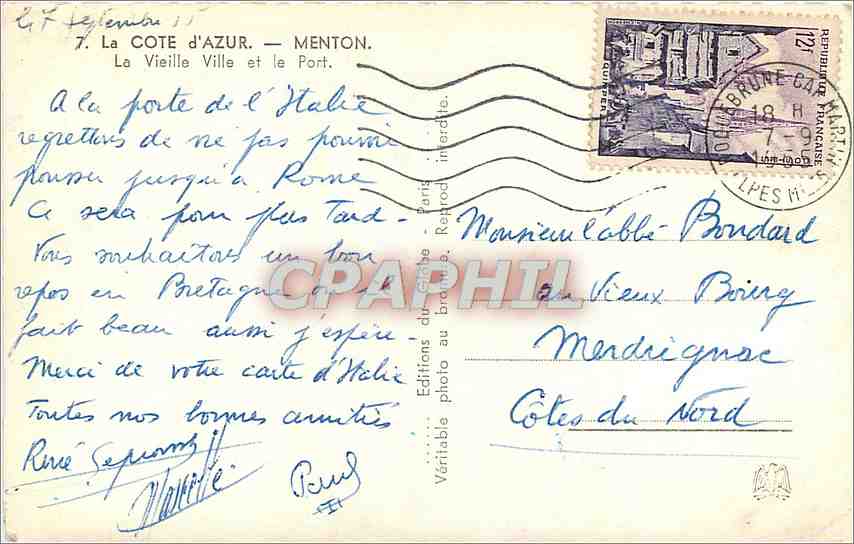 septembre 55
7. La COTE d'AZUR. — MENTON.
La Vieille Ville et le Port.
A la porte de l'Italie
regrettons de ne pas pouvoir
pousser jusqu'à Rome
Ce sera pour plus tard -
Vous souhaitons un bon
repos en Bretagne où il
fait beau aussi j'espère -
Merci de votre carte d'Italie
Toutes nos bonnes amitiés
René
Paul
Editions du Globe - Paris
Véritable photo au bromure. Reprod. interdite.
12F
REPUBLIQUE FRANÇAISE
QUIMPER
POSTES
ROQUEBRUNE-CAP-MARTIN
18 H
7-9
1955
ALPES MMES
Monsieur l'abbé Boudard
au Vieux Bourg
Merdrignac
Côtes du Nord
CPAPHIL